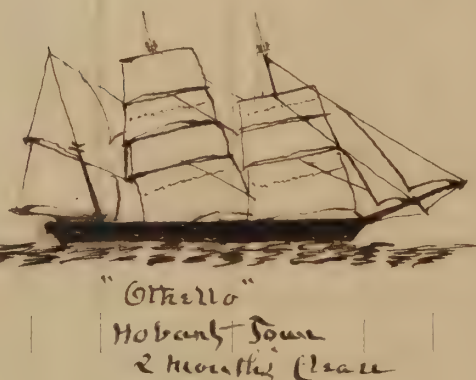 "Othello"
Hobart Town
2 months' Clean